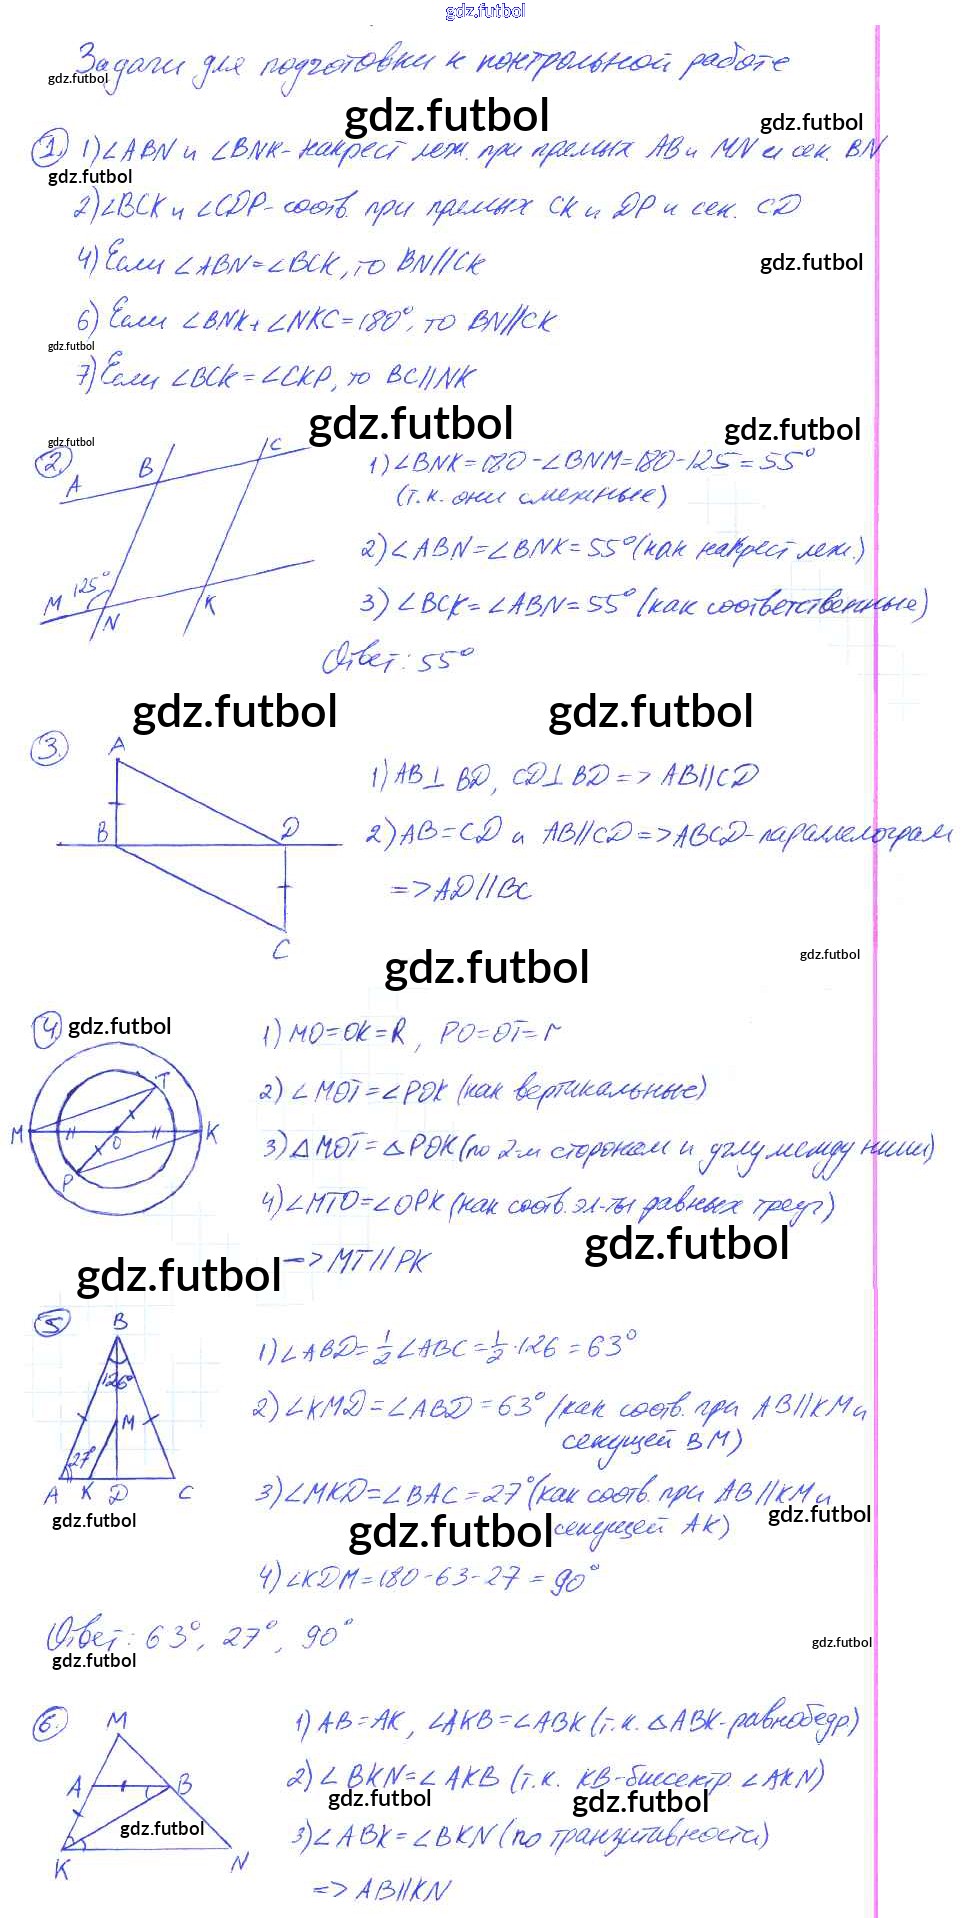 gdz.futbol
Задачи для подготовки к контрольной работе
gdz.futbol
gdz.futbol
gdz.futbol
1. 1) ∠ABN и ∠BNK - накрест леж. при прямых AB и MN и сек. BN
gdz.futbol
2) ∠BCK и ∠CDP - соотв. при прямых CK и DP и сек. CD
4) Если ∠ABN = ∠BCK, то BN//CK
gdz.futbol
6) Если ∠BNK + ∠NKC = 180°, то BN//CK
gdz.futbol
7) Если ∠BCK = ∠CKP, то BC//NK
gdz.futbol
gdz.futbol
gdz.futbol
2. A B C M 125° N K
1) ∠BNK = 180 - ∠BNM = 180 - 125 = 55°
(т.к. они смежные)
2) ∠ABN = ∠BNK = 55° (как накрест леж.)
3) ∠BCK = ∠ABN = 55° (как соответственные)
Ответ: 55°
gdz.futbol
gdz.futbol
3. A B D C
1) AB⊥BD, CD⊥BD => AB//CD
2) AB = CD и AB//CD => ABCD - параллелограм
=> AD//BC
gdz.futbol
gdz.futbol
4. gdz.futbol
M T O K P
1) MO = OK = R, PO = OT = r
2) ∠MOT = ∠POK (как вертикальные)
3) △MOT = △POK (по 2-м сторонам и углу между ними)
4) ∠MTO = ∠OPK (как соотв. эл-ты равных треуг)
gdz.futbol
=> MT//PK
gdz.futbol
5. B 126° M 27° A K D C
1) ∠ABD = 1/2 ∠ABC = 1/2 · 126 = 63°
2) ∠KMD = ∠ABD = 63° (как соотв. при AB//KM и
секущей BM)
3) ∠MKD = ∠BAC = 27° (как соотв. при AB//KM и
секущей AK)
gdz.futbol
gdz.futbol
gdz.futbol
4) ∠KDM = 180 - 63 - 27 = 90°
Ответ: 63°, 27°, 90°
gdz.futbol
gdz.futbol
6. M A B K N
1) AB = AK, ∠AKB = ∠ABK (т.к. △ABK - равнобедр)
2) ∠BKN = ∠AKB (т.к. KB - биссектр. ∠AKN)
gdz.futbol
gdz.futbol
gdz.futbol
3) ∠ABK = ∠BKN (по транзитивности)
=> AB//KN